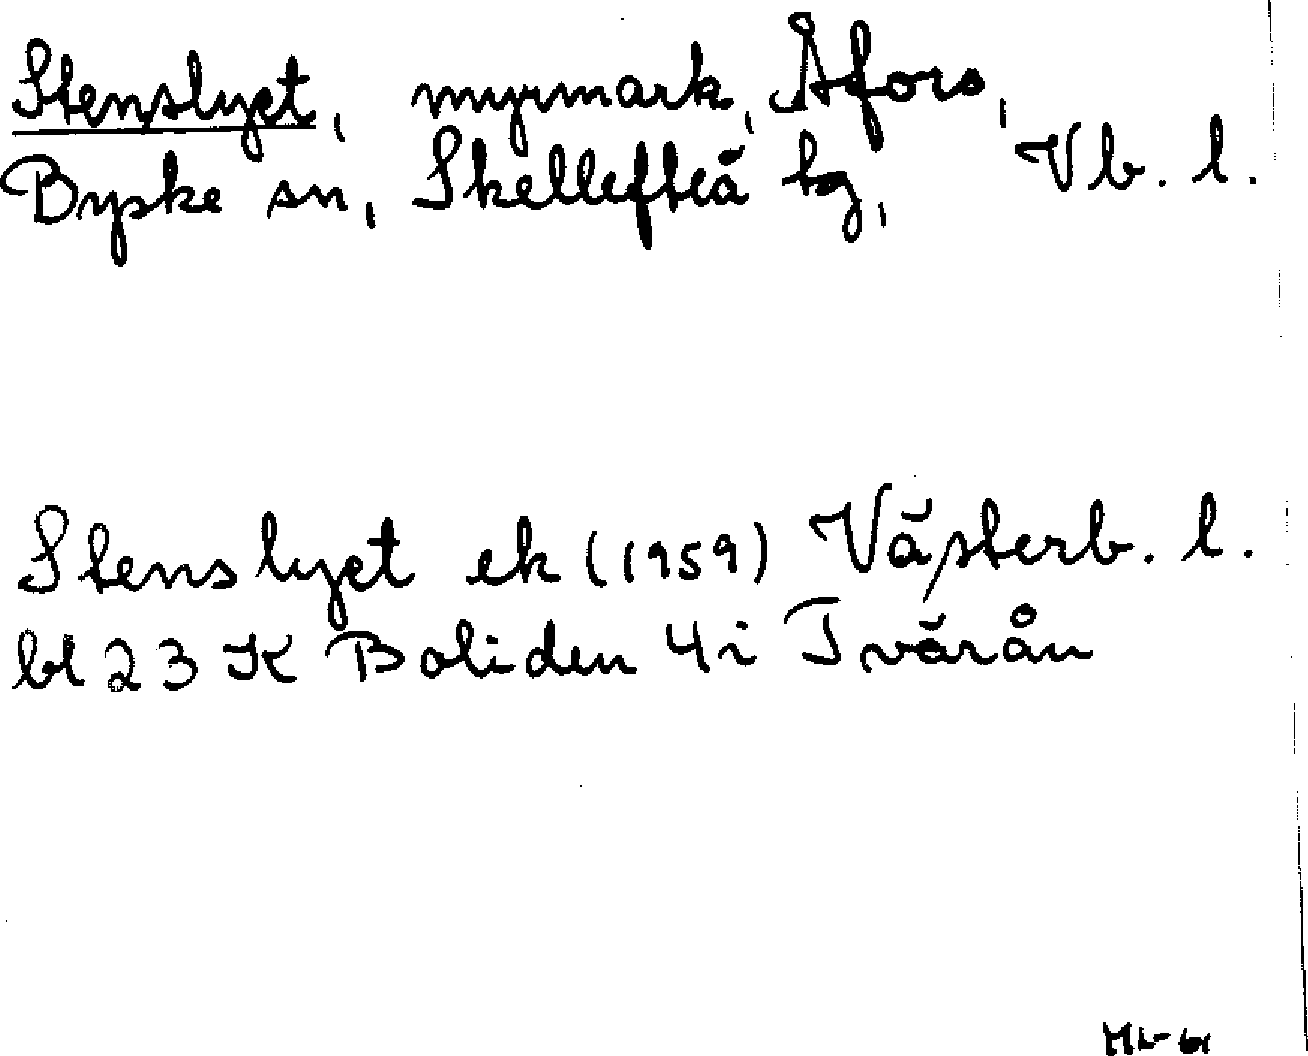 Stenslyet, myrmark, Åfors,
Byske sn, Skellefteå tg, Vb. l.
Stenslyet ek (1959) Västerb. l.
bl 23 K Boliden 4i Tvärån